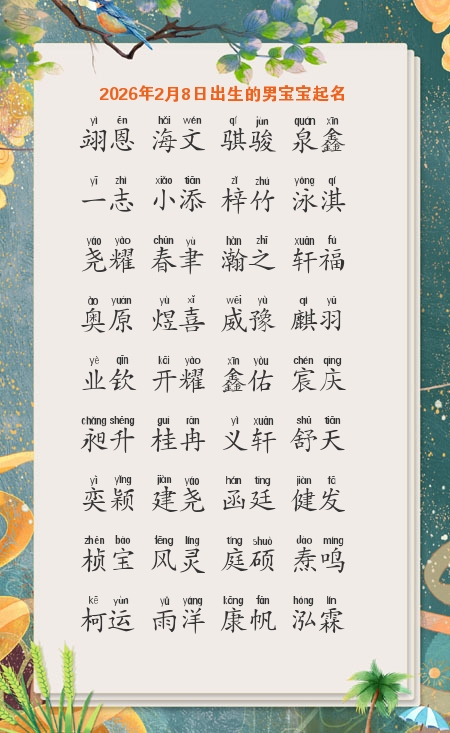 2026年2月8日出生的男宝宝起名
yì ēn hǎi wén qí jùn quán xīn
翊恩 海文 骐骏 泉鑫
yī zhì xiǎo tiān zǐ zhú yǒng qí
一志 小添 梓竹 泳淇
yáo yào chūn yù hàn zhī xuān fú
尧耀 春聿 瀚之 轩福
ào yuán yù xǐ wēi yù qí yǔ
奥原 煜喜 威豫 麒羽
yè qīn kāi yào xīn yòu chén qìng
业钦 开耀 鑫佑 宸庆
chǎng shēng guì rǎn yì xuān shū tiān
昶升 桂冉 义轩 舒天
yì yǐng jiàn yáo hán tíng jiàn fā
奕颖 建尧 函廷 健发
zhēn bǎo fēng líng tíng shuò dào míng
桢宝 风灵 庭硕 焘鸣
kē yùn yǔ yáng kāng fān hóng lín
柯运 雨洋 康帆 泓霖